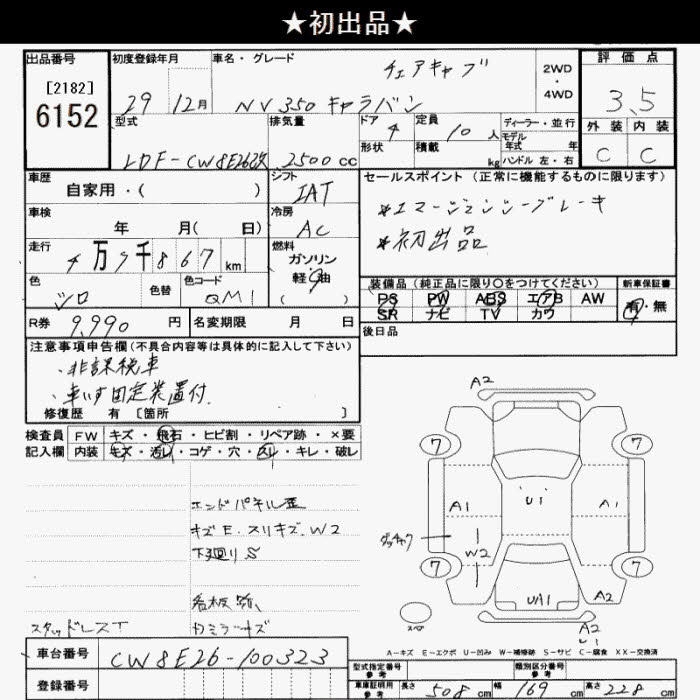 ★初出品★
出品番号
[2182]
6152
初度登録年月
29 12月
車名・グレード
チェアキャブ
NV350 キャラバン
2WD
・
4WD
評価点
3.5
外装 内装
C C
型式
LDF-CW8E26改
排気量
2500 cc
ドア 4
形状
定員 10 人
積載 kg
ディーラー・並行
モデル年式 年
ハンドル 左・右
車歴
自家用・( )
シフト
IAT
車検
年 月( 日)
冷房
AC
走行
4万7千867 km
燃料
ガソリン
軽油
( )
色
シロ
色替
色コード
QM1
R券 9,990 円
名変期限 月 日
セールスポイント (正常に機能するものに限ります)
*エマージェンシーブレーキ
*初出品
装備品(純正品に限り○をつけてください)
PS PW ABS エアB AW
SR ナビ TV カワ
新車保証書
有・無
後日品
注意事項申告欄(不具合内容等は具体的に記入して下さい)
・非課税車
・車いす固定装置付
修復歴 有 [箇所 ]
検査員
記入欄
FW キズ・飛石・ヒビ割・リペア跡・×要
内装 キズ・汚れ・コゲ・穴・スレ・キレ・破レ
エンドパネル歪
キズE.スリキズ.W2
下廻りS
看板跡
スタッドレスT
Rミラーキズ
A2
7
7
A1
U1
A1
W2
7
7
UA1
A2
A2
A-キズ E-エクボ U-凹み W-補修跡 S-サビ C-腐食 XX-交換済
車台番号
CW8E26-100323
登録番号
型式指定番号
参考
類別区分番号
参考
車庫証明用
参考
長さ 508 cm 幅 169 cm 高さ 228 cm